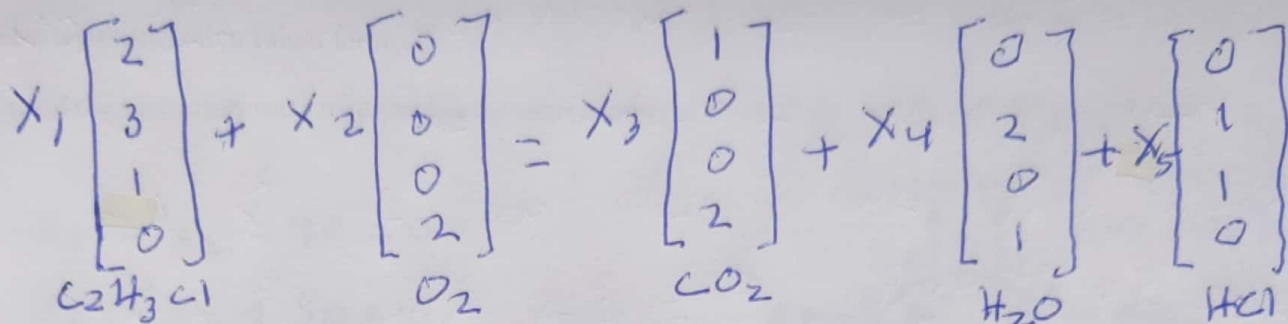 X1 [2 3 1 0] + X2 [0 0 0 2] = X3 [1 0 0 2] + X4 [0 2 0 1] + X5 [0 1 1 0]
C2H3Cl O2 CO2 H2O HCl